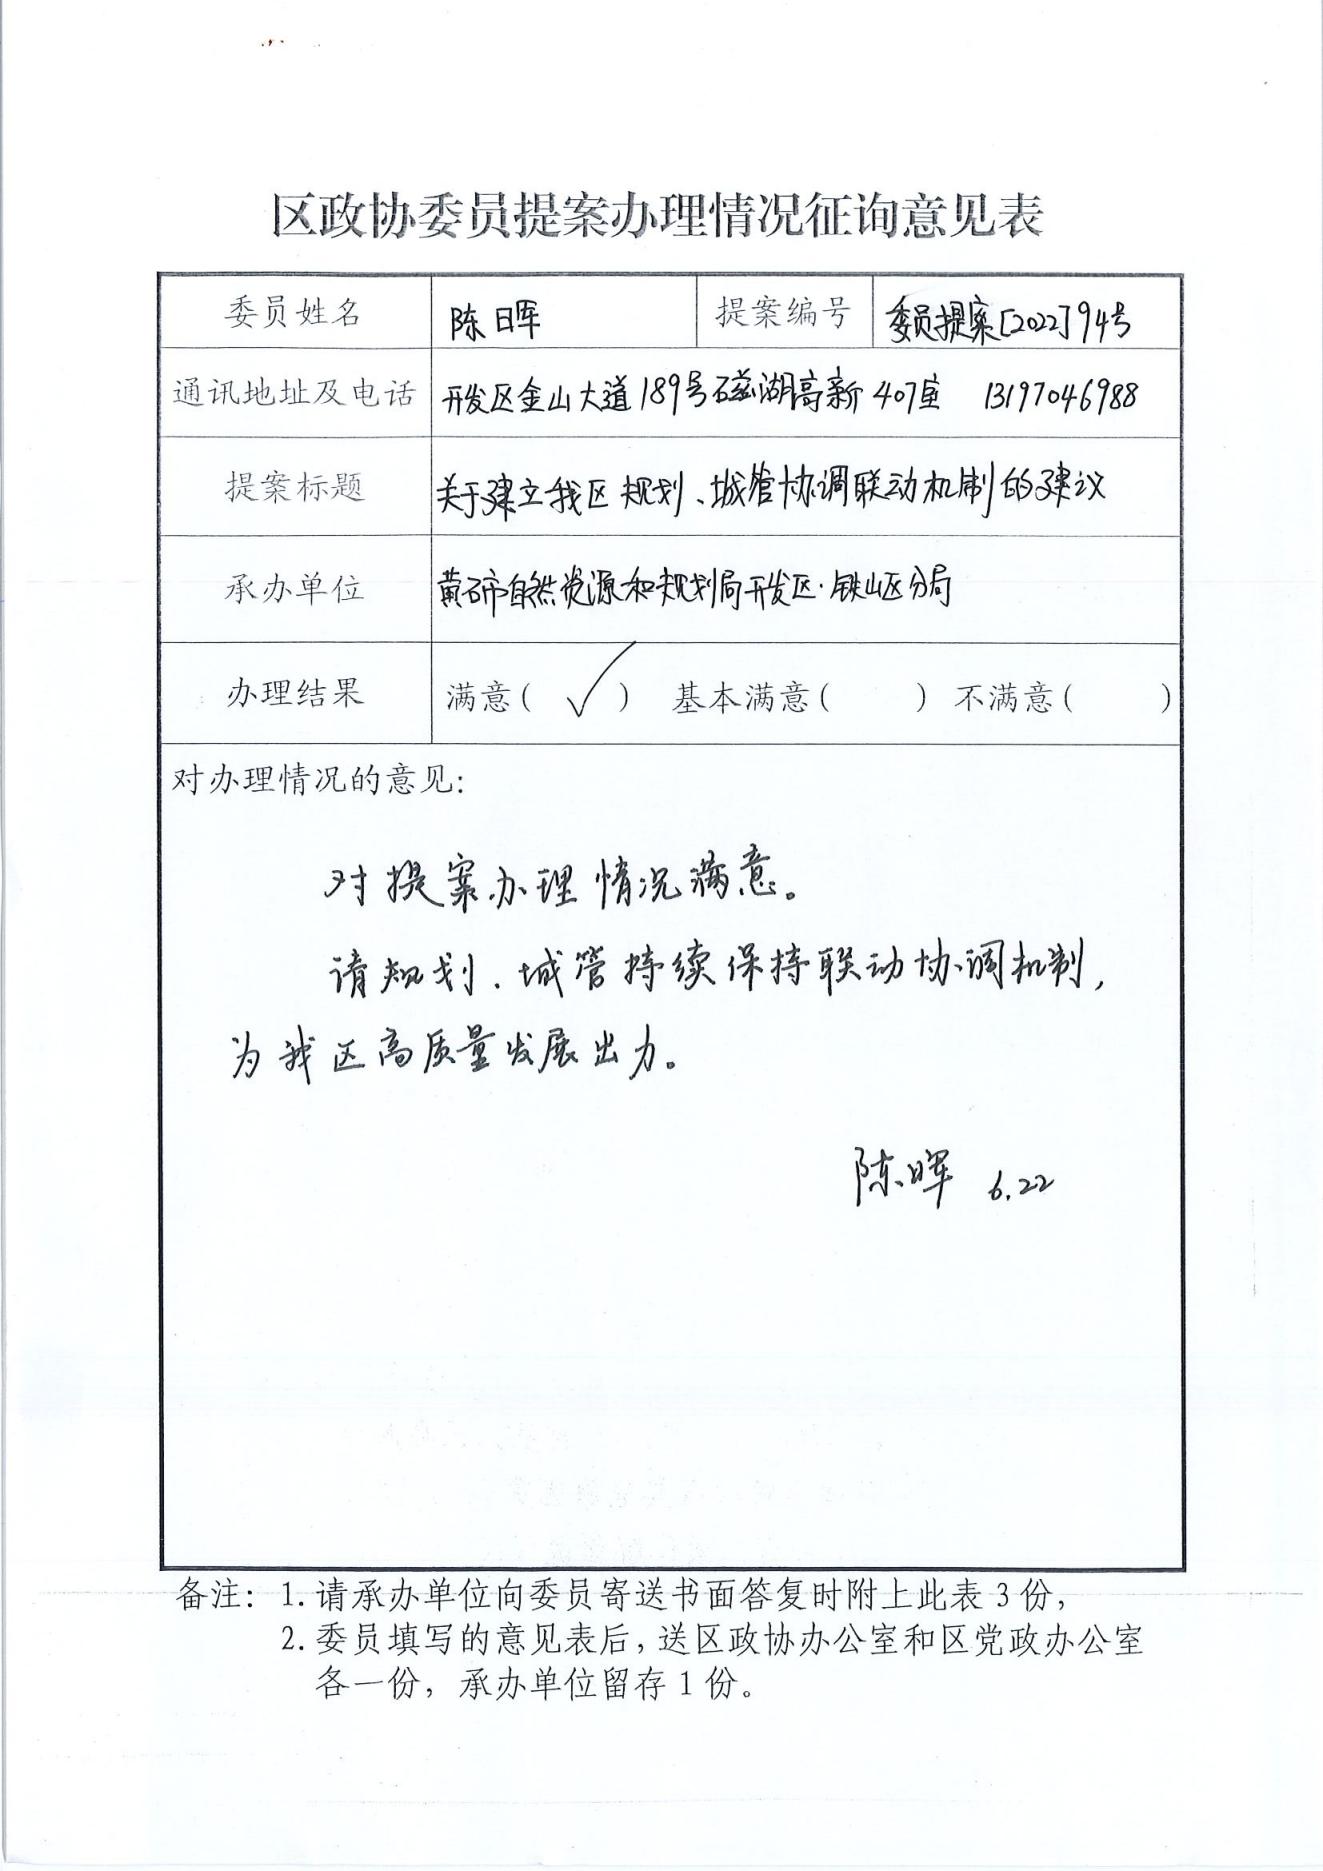 区政协委员提案办理情况征询意见表
委员姓名 陈晖 提案编号 委员提案[2022]94号
通讯地址及电话 开发区金山大道189号磁湖高新407室 13197046988
提案标题 关于建立我区规划、城管协调联动机制的建议
承办单位 黄石市自然资源和规划局开发区·铁山区分局
办理结果 满意(✓) 基本满意( ) 不满意( )
对办理情况的意见:
对提案办理情况满意。
请规划、城管持续保持联动协调机制,
为我区高质量发展出力。
陈晖 6.22
备注: 1.请承办单位向委员寄送书面答复时附上此表3份,
2.委员填写的意见表后,送区政协办公室和区党政办公室
各一份, 承办单位留存1份。